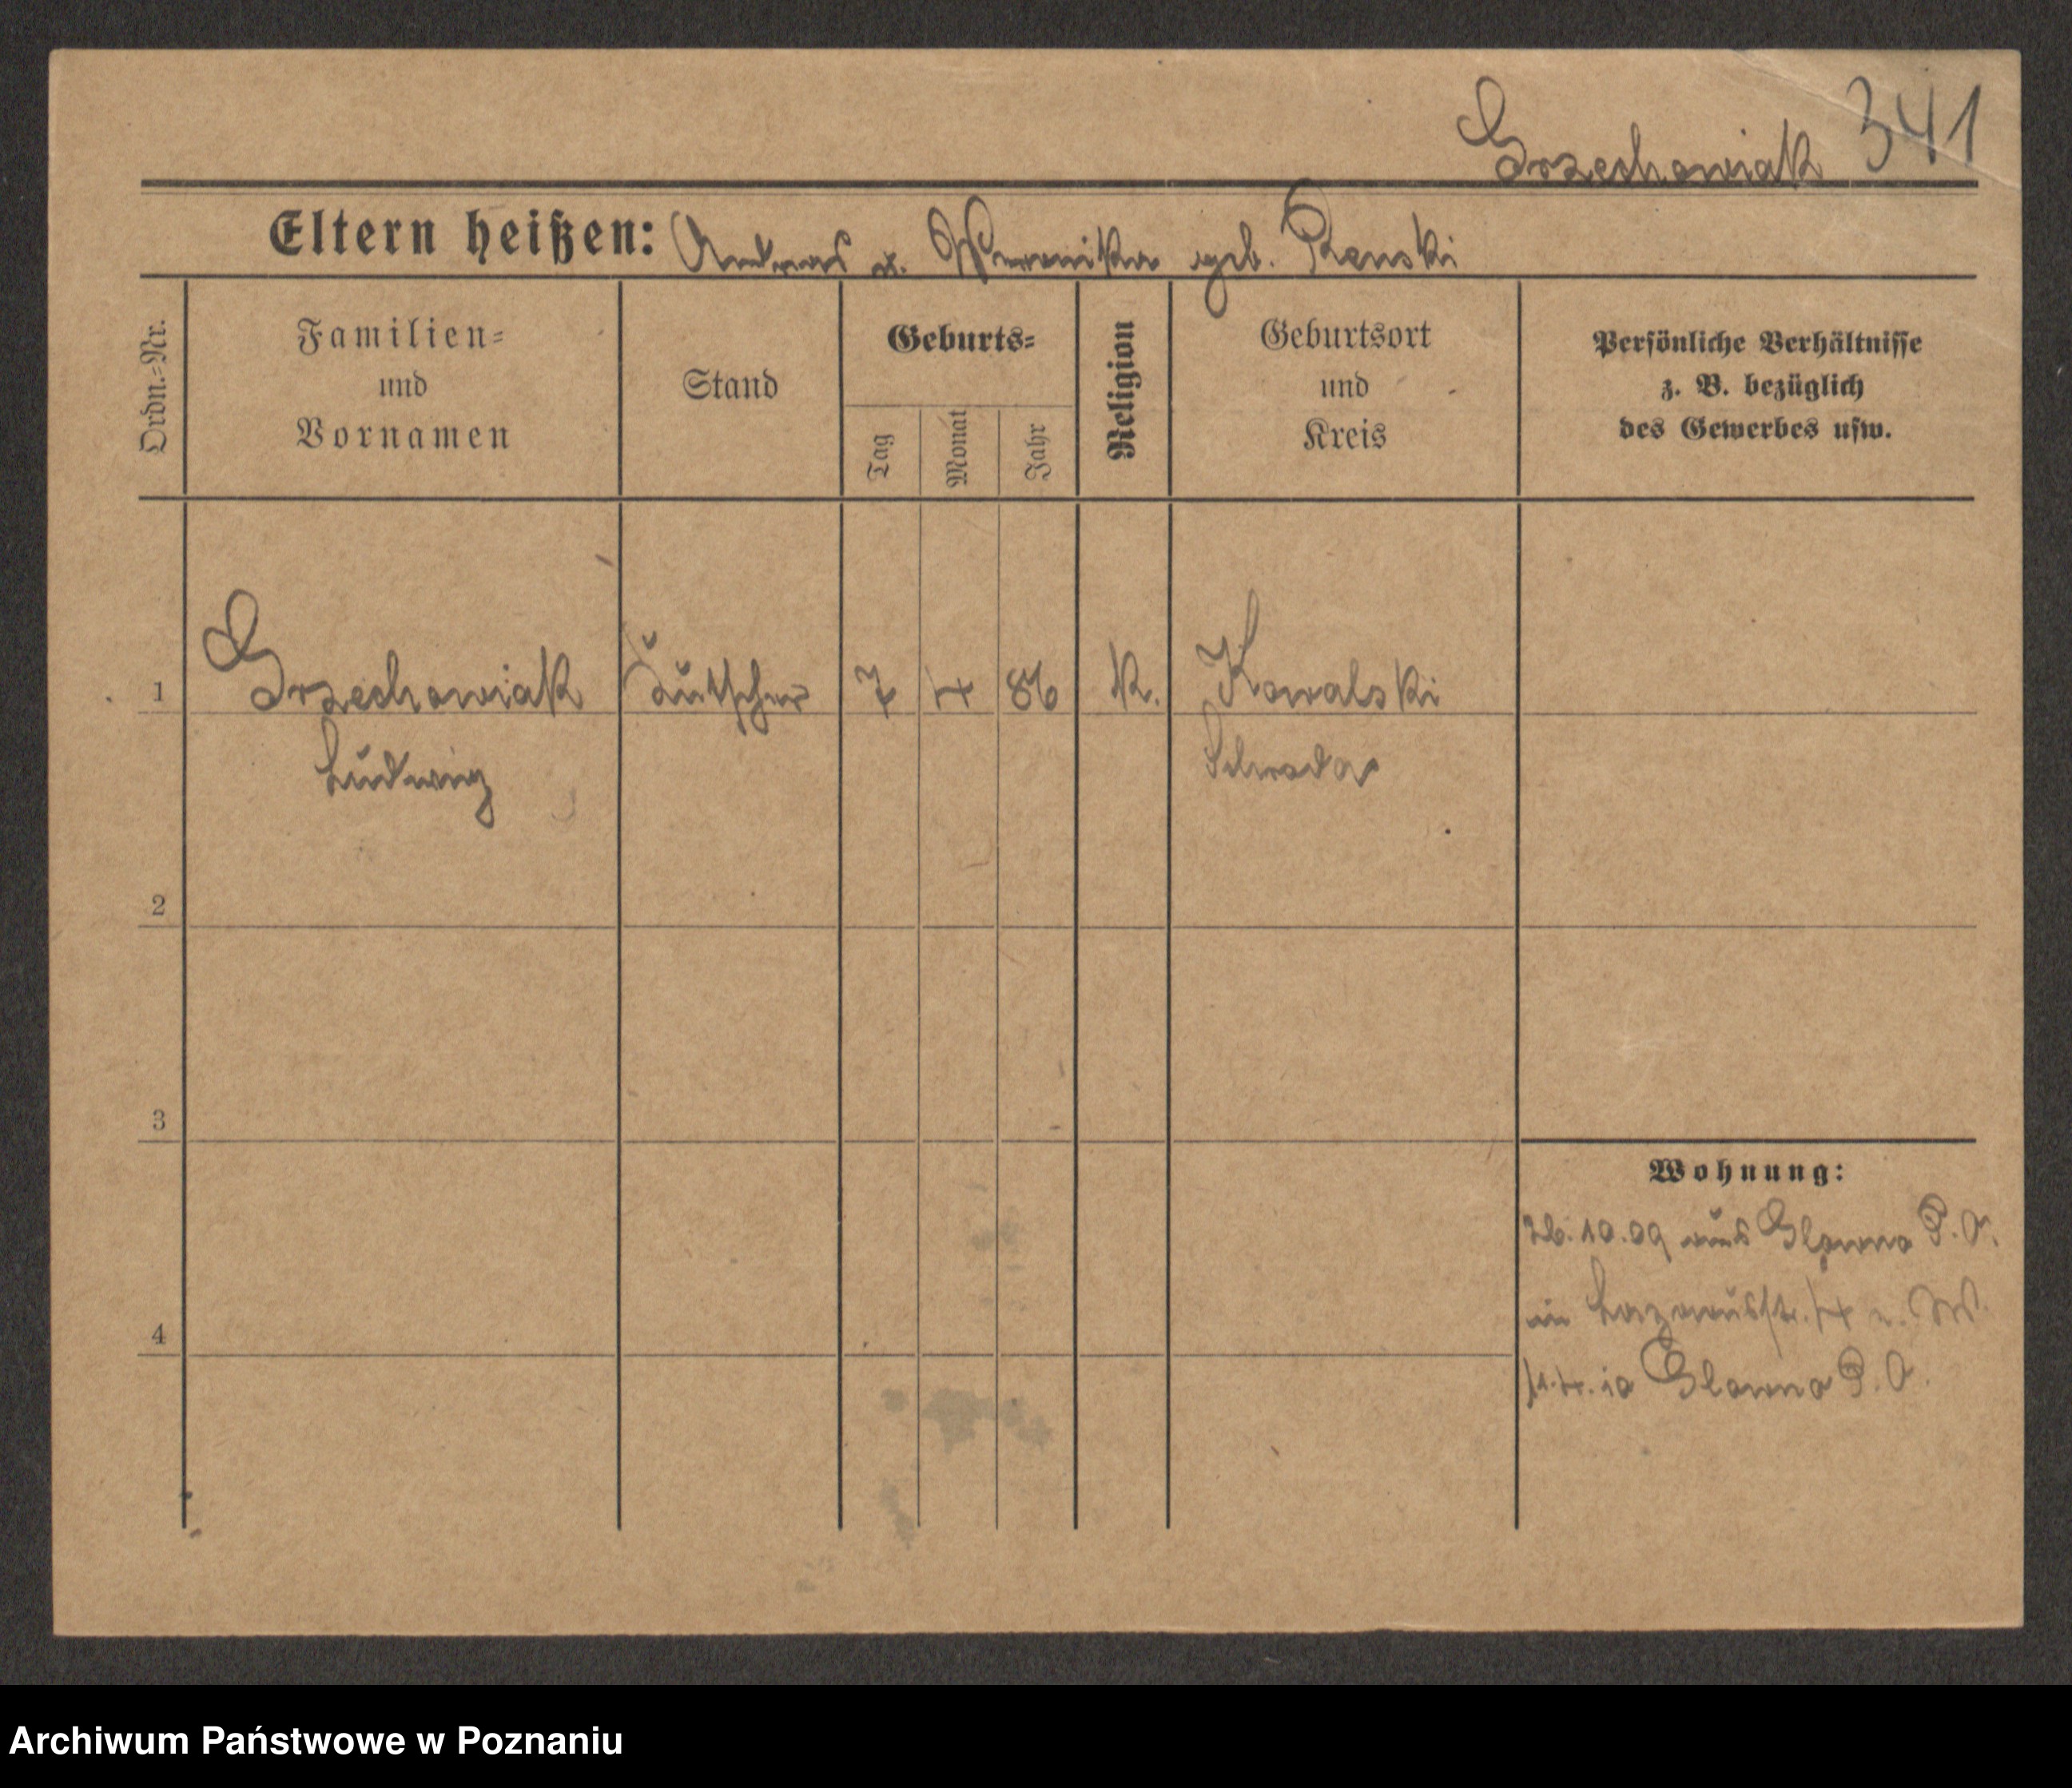 Grzechowiak 341
Eltern heißen: Andreas u. Weronika geb. Renski
Ordn.-Nr.
Familien-
und
Vornamen
Stand
Geburts-
Tag
Monat
Jahr
Religion
Geburtsort
und
Kreis
Persönliche Verhältnisse
z. B. bezüglich
des Gewerbes usw.
1 Grzechowiak 7 4 86 K. Kowalski
Ludwig Schroda
2
3
4
Wohnung:
26.10.09 aus Glowno P.O.
in Lazarusstr. 14
1.4.10 Glowno P.O.
Archiwum Państwowe w Poznaniu